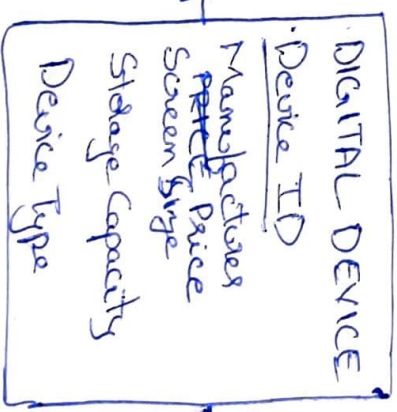 DIGITAL DEVICE
Device ID
Manufactures
Price
Screen Size
Storage Capacity
Device Type